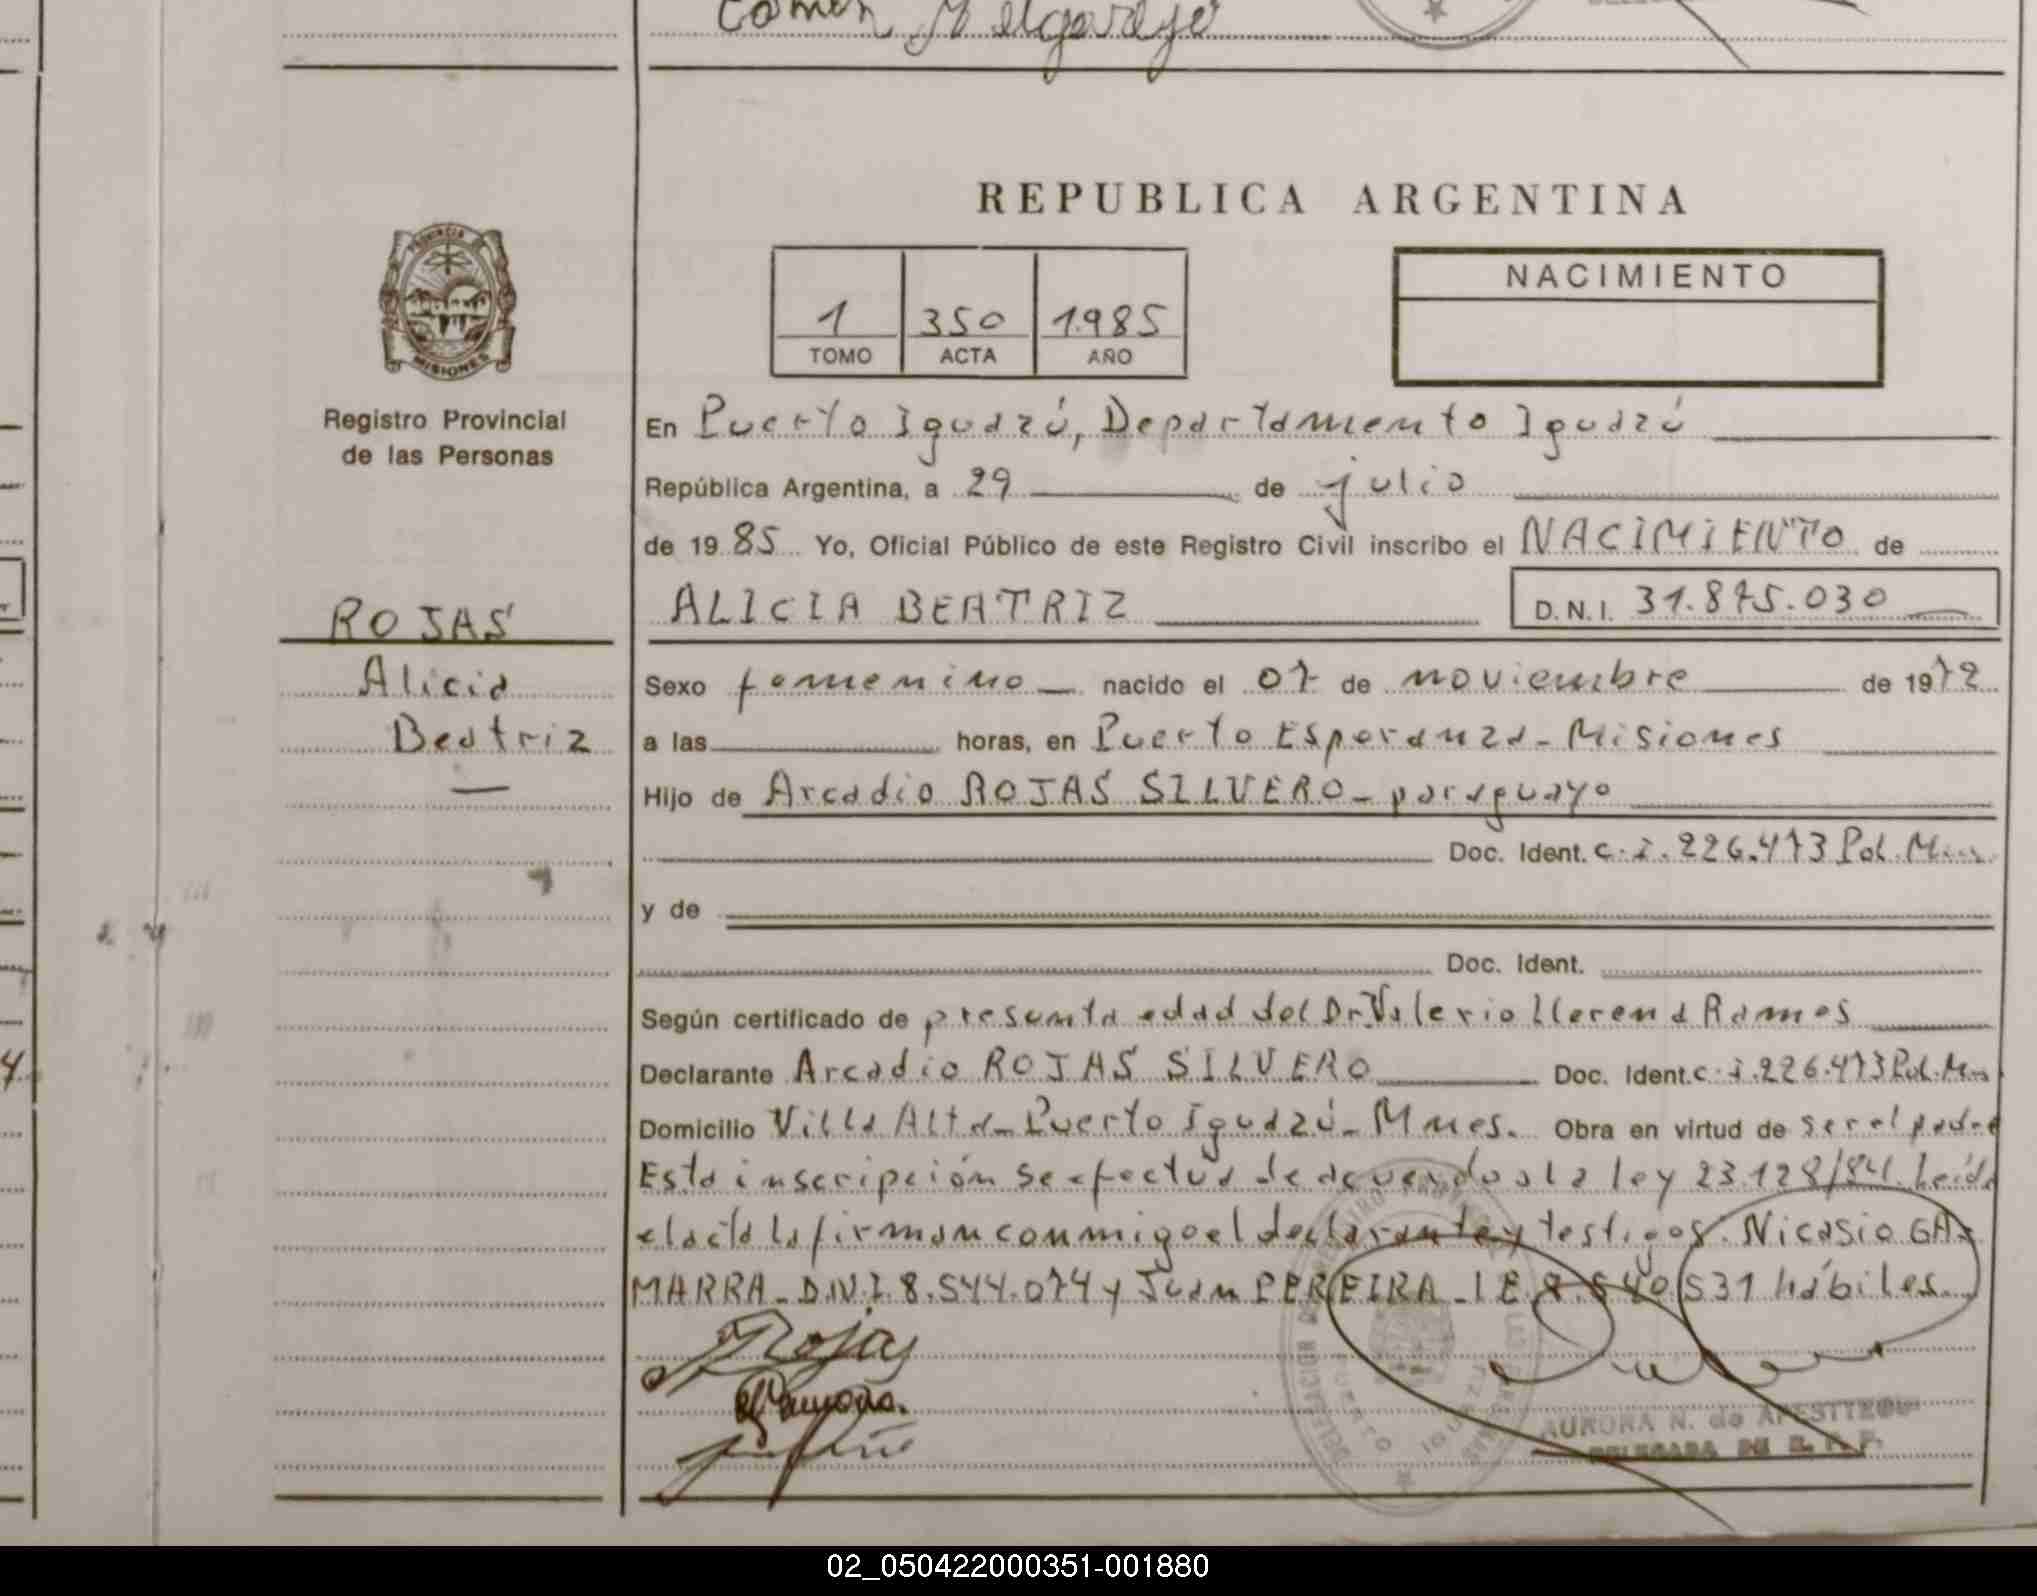 Comen Melgarejo
REPUBLICA ARGENTINA
PROVINCIA DE
MISIONES
Registro Provincial
de las Personas
1 350 1.985
TOMO ACTA AÑO
NACIMIENTO
En Puerto Iguazú, Departamento Iguazú
República Argentina, a 29 de julio
de 19 85 Yo, Oficial Público de este Registro Civil inscribo el NACIMIENTO de
ROJAS
Alicia
Beatriz
ALICIA BEATRIZ D.N.I. 31.875.030
Sexo femenino nacido el 07 de noviembre de 1972
a las horas, en Puerto Esperanza - Misiones
Hijo de Arcadio ROJAS SILVERO - paraguayo
Doc. Ident. c.i. 226.473 Pol. Mns
y de
Doc. Ident.
Según certificado de presunta edad del Dr. Valerio Llerena Ramos
Declarante Arcadio ROJAS SILVERO Doc. Ident. c.i. 226.473 Pol. Mns
Domicilio Villa Alta - Puerto Iguazú - Mnes. Obra en virtud de ser el padre
Esta inscripción se efectua de acuerdo a la ley 23.128/84. Leída
el acta la firman conmigo el declarante y testigos: Nicasio GA-
MARRA - D.N.I. 8.544.074 y Juan PEREIRA - LE 8.540.531 hábiles.
Rojas
AURORA N. de APESTTEGUI
DELEGADA DE R. P. P.
02_050422000351-001880